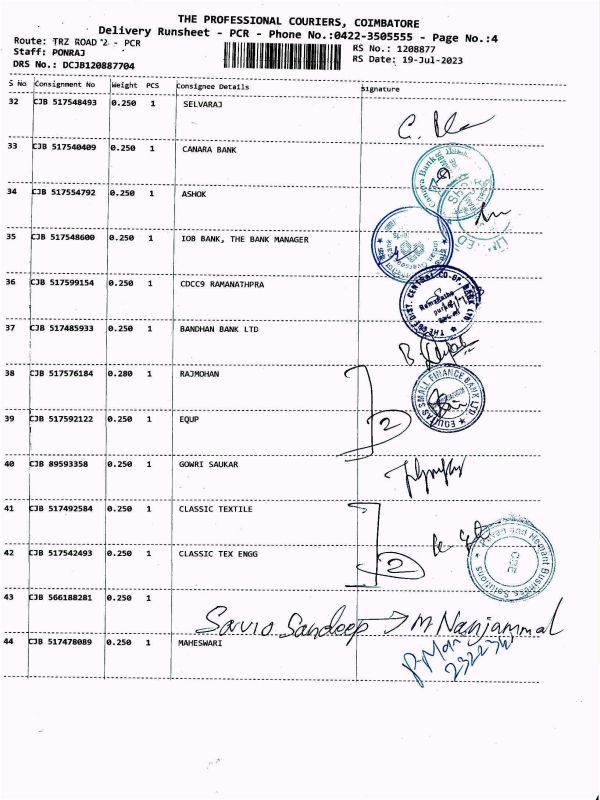 THE PROFESSIONAL COURIERS, COIMBATORE
Delivery Runsheet - PCR - Phone No.:0422-3505555 - Page No.:4
Route: TRZ ROAD 2 - PCR RS No.: 1208877
Staff: PONRAJ RS Date: 19-Jul-2023
DRS No.: DCJB120887704
S No Consignment No Weight PCS Consignee Details Signature
32 CJB 517548493 0.250 1 SELVARAJ
33 CJB 517540409 0.250 1 CANARA BANK
Canara Bank
34 CJB 517554792 0.250 1 ASHOK
LIMITED
35 CJB 517548600 0.250 1 IOB BANK, THE BANK MANAGER
36 CJB 517599154 0.250 1 CDCC9 RAMANATHPRA
37 CJB 517485933 0.250 1 BANDHAN BANK LTD
38 CJB 517576184 0.280 1 RAJMOHAN
EQUITAS SMALL FINANCE BANK LTD
39 CJB 517592122 0.250 1 EQUP
2
40 CJB 89593358 0.250 1 GOWRI SAUKAR
41 CJB 517492584 0.250 1 CLASSIC TEXTILE
42 CJB 517542493 0.250 1 CLASSIC TEX ENGG
2
and Hemant Business Solutions
CBE
43 CJB 566188281 0.250 1
Savio Sandeep → M. Nanjammal
44 CJB 517478089 0.250 1 MAHESWARI